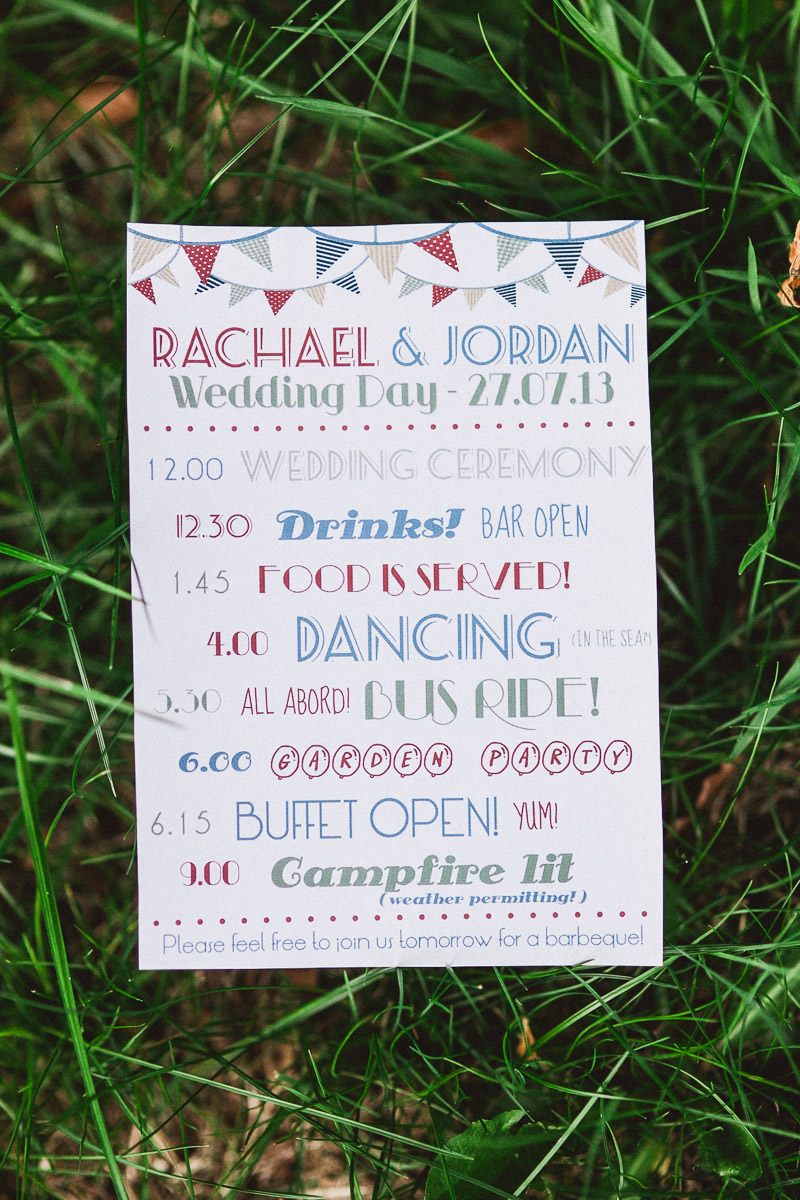 RACHAEL & JORDAN
Wedding Day - 27.07.13
12.00 WEDDING CEREMONY
12.30 Drinks! BAR OPEN
1.45 FOOD IS SERVED!
4.00 DANCING (IN THE SEA?)
5.30 ALL ABORD! BUS RIDE!
6.00 GARDEN PARTY
6.15 BUFFET OPEN! YUM!
9.00 Campfire lit
(weather permitting!)
Please feel free to join us tomorrow for a barbeque!